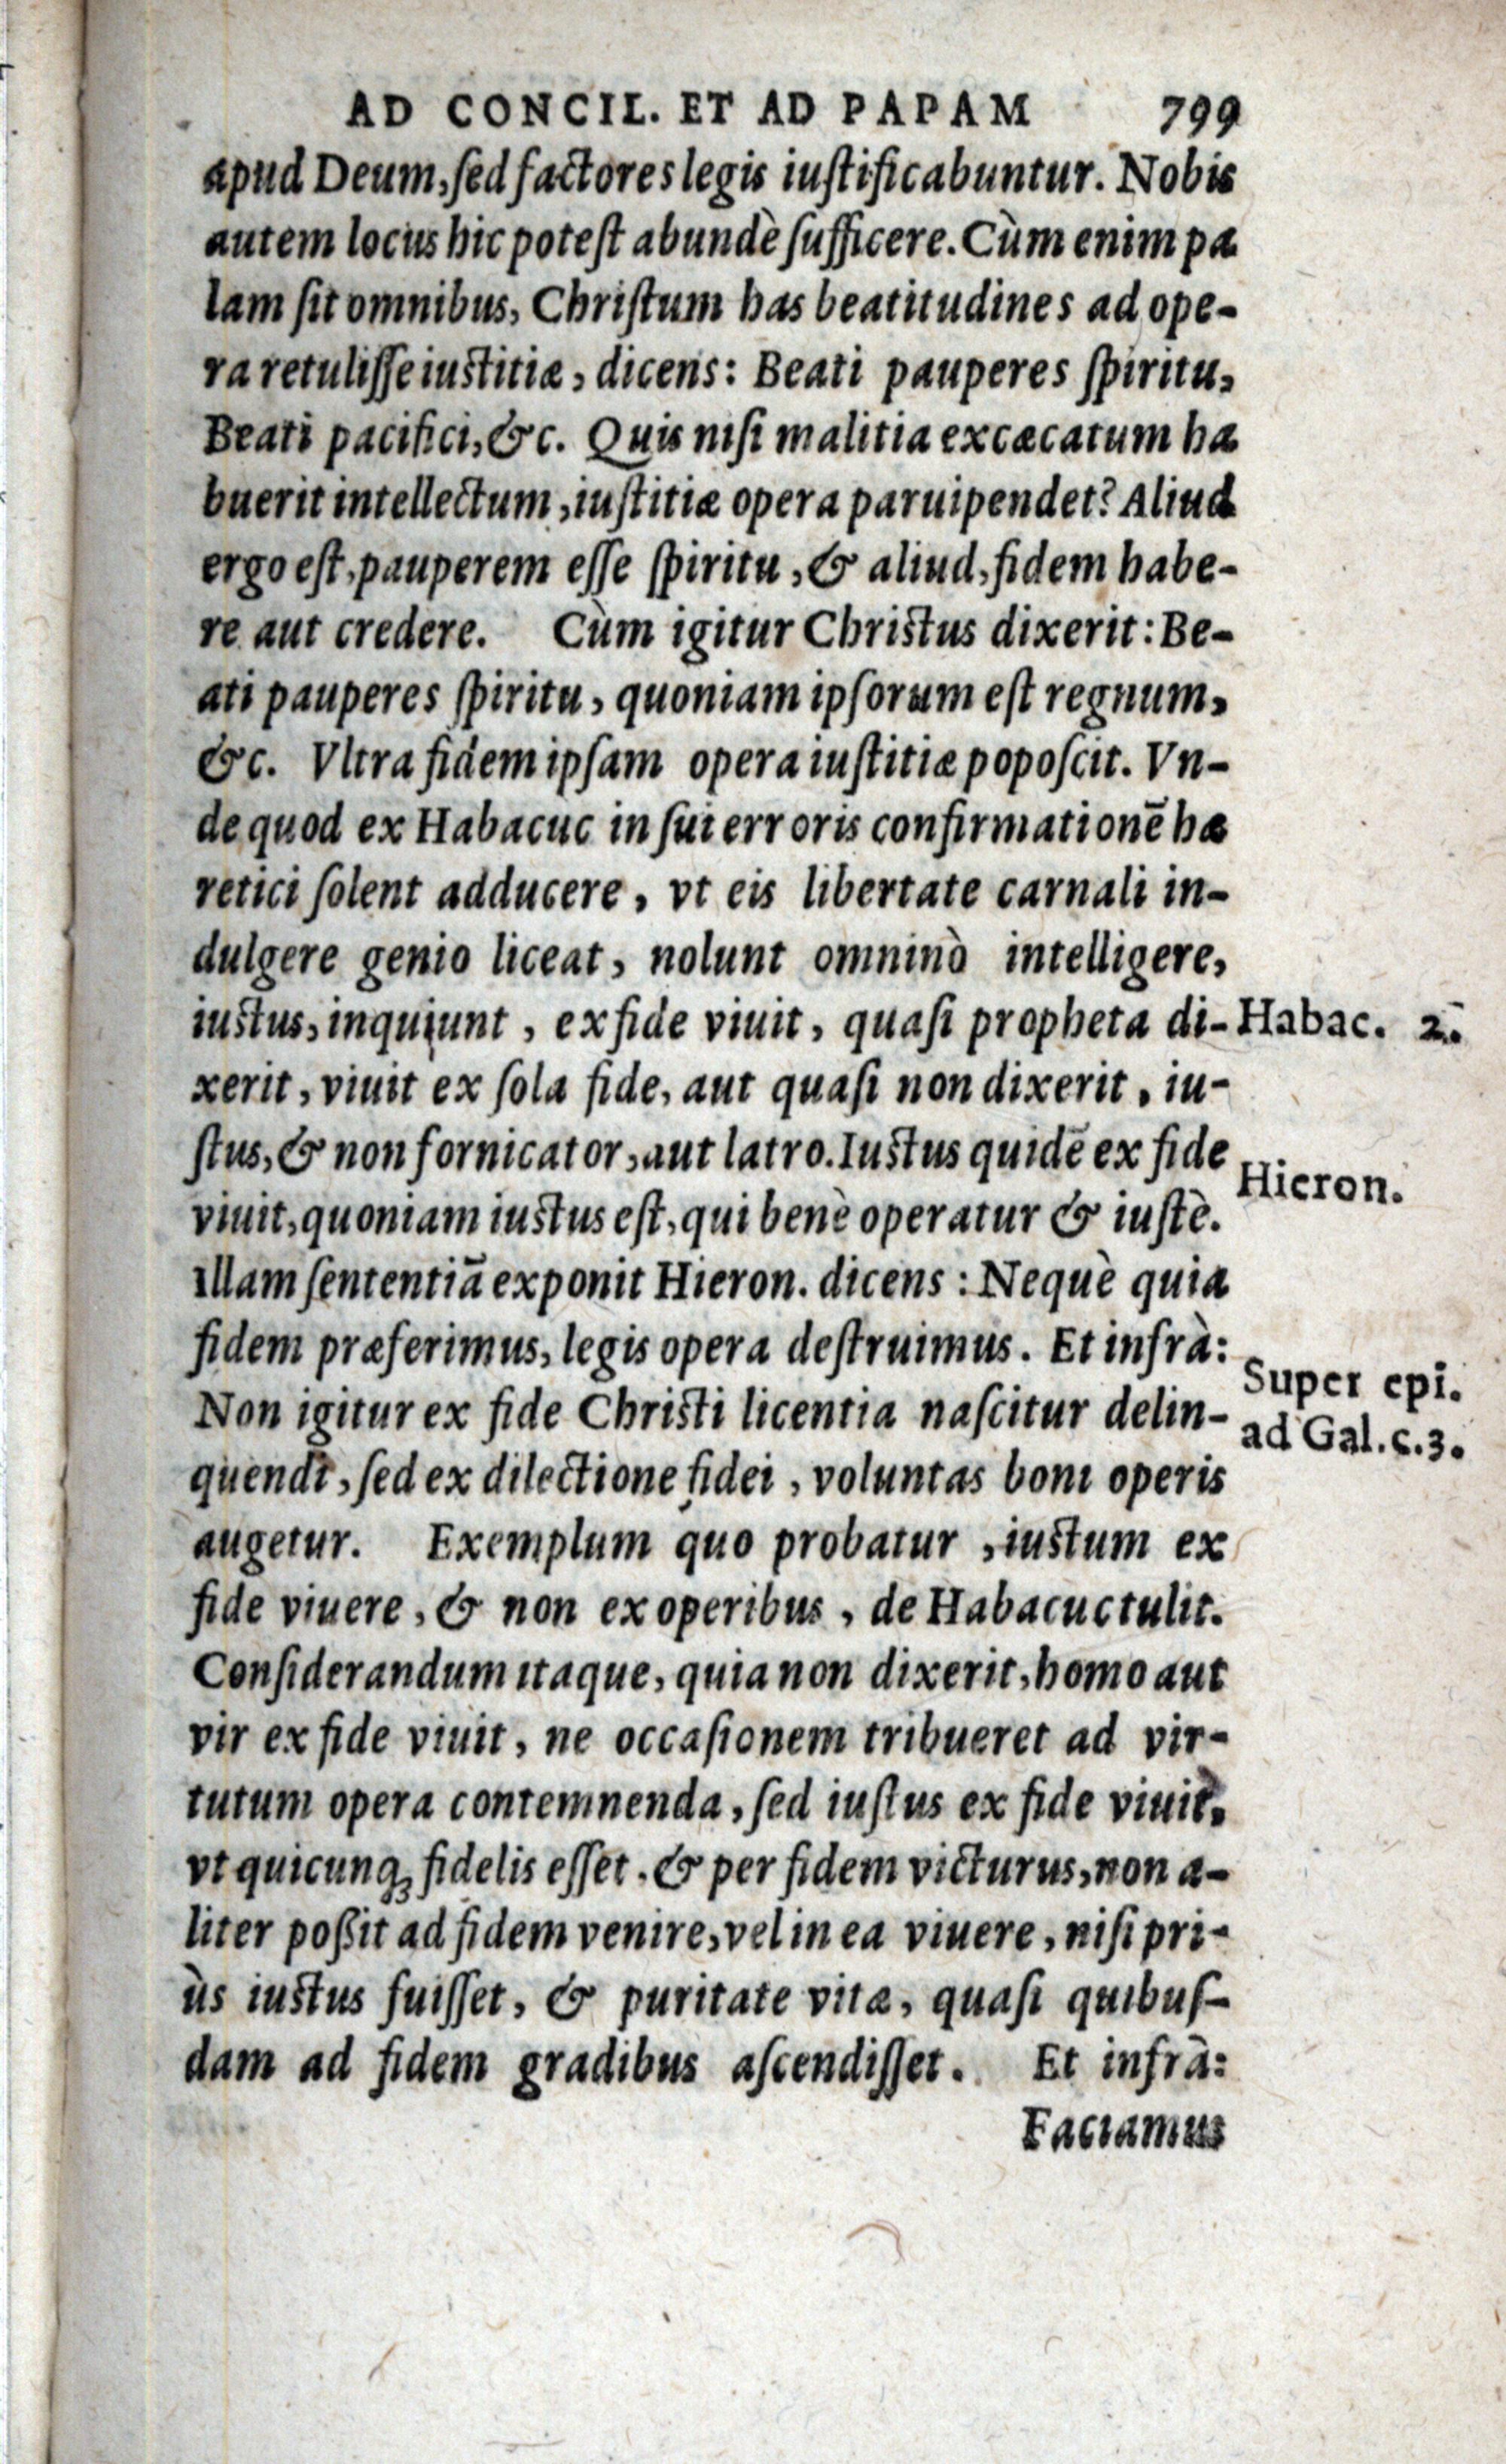 AD CONCIL. ET AD PAPAM 799
apud Deum, sed factores legis iustificabuntur. Nobis
autem locus hic potest abundè sufficere. Cùm enim pa
lam sit omnibus, Christum has beatitudines ad ope-
ra retulisse iustitiæ, dicens: Beati pauperes spiritu,
Beati pacifici, &c. Quis nisi malitia excæcatum ha
buerit intellectum, iustitiæ opera paruipendet? Aliud
ergo est, pauperem esse spiritu, & aliud, fidem habe-
re aut credere. Cùm igitur Christus dixerit: Be-
ati pauperes spiritu, quoniam ipsorum est regnum,
&c. Vltra fidem ipsam opera iustitiæ poposcit. Vn-
de quod ex Habacuc in sui erroris confirmationē hæ
retici solent adducere, vt eis libertate carnali in-
dulgere genio liceat, nolunt omninò intelligere,
iustus, inquiunt, ex fide viuit, quasi propheta di-
Habac. 2.
xerit, viuit ex sola fide, aut quasi non dixerit, iu-
stus, & non fornicator, aut latro. Iustus quidē ex fide
Hieron.
viuit, quoniam iustus est, qui benè operatur & iustè.
illam sententiā exponit Hieron. dicens: Nequè quia
fidem præferimus, legis opera destruimus. Et infrà:
Super epi.
Non igitur ex fide Christi licentia nascitur delin-
ad Gal. c. 3.
quendi, sed ex dilectione fidei, voluntas boni operis
augetur. Exemplum quo probatur, iustum ex
fide viuere, & non ex operibus, de Habacuc tulit.
Considerandum itaque, quia non dixerit, homo aut
vir ex fide viuit, ne occasionem tribueret ad vir-
tutum opera contemnenda, sed iustus ex fide viuit,
vt quicunq; fidelis esset, & per fidem victurus, non a-
liter poßit ad fidem venire, vel in ea viuere, nisi pri-
ùs iustus fuisset, & puritate vitæ, quasi quibus-
dam ad fidem gradibus ascendisset. Et infrà:
Faciamus